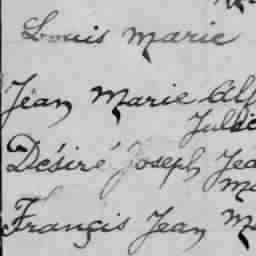 Louis Marie
Jean Marie Alf
Désiré Joseph Jea
Ma
Français Jean M